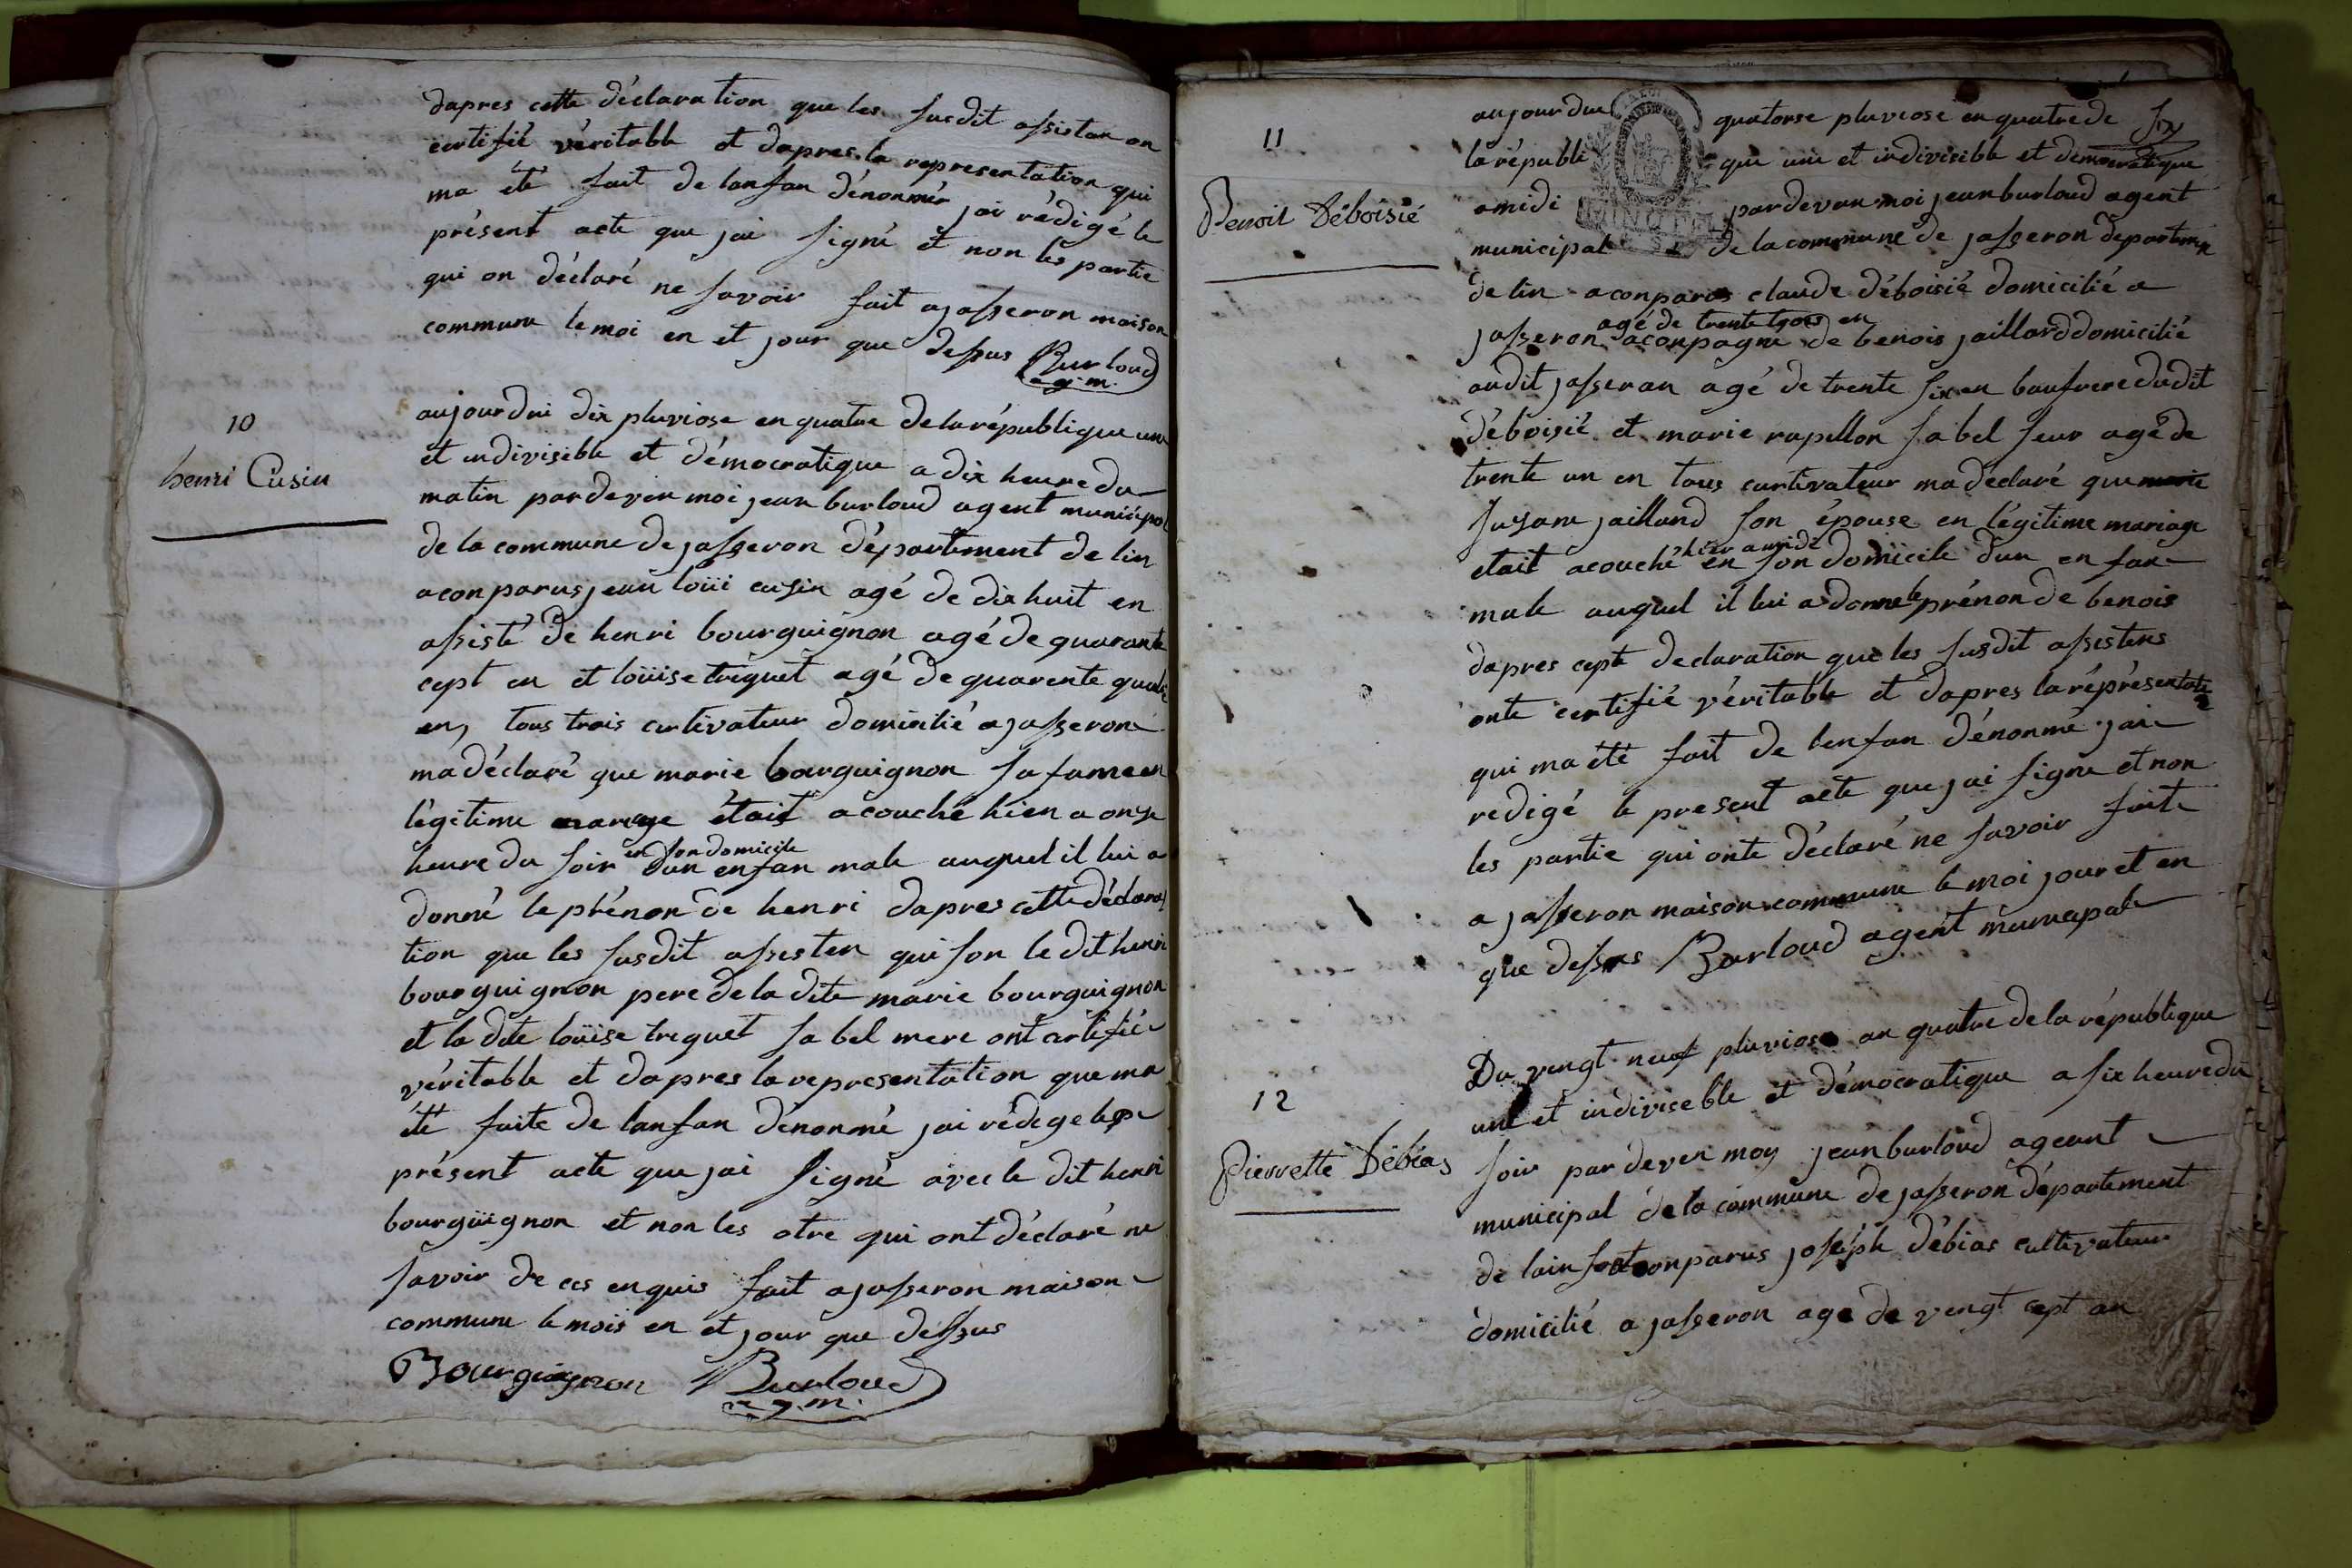 dapres cette déclaration que les susdit assistan on
certifié véritable et dapres la representation qui
ma été fait de lanfan dénonmér jai rédigé le
présent acte que jai signé et non les partie
qui on déclaré ne savoir fait a jasseron maison
commune le moi en et jour que dessus Burloud
ag.m.
10
henri Cusin
aujourdui dix pluviose en quatre de la république une
et indivisible et démocratique a dix heure du
matin pardeven moi jean burloud agent municipal
de la commune de jasseron département de lin
a conparus jean loüi cusin agé de dix huit en
assisté de henri bourguignon agé de quarante
cept en et loüise triguet agé de quarente quatre
en, tous trois curtivateur domicilié a jasseron
ma déclaré que marie bourguignon sa fame en
légitime mariage était acouché hier a onze
heure du soir en son domicile dun enfan male auquel il lui a
donné le prénon de henri dapres cette déclara
tion que les susdit assisten qui son le dit henri
bourguignon pere de la dite marie bourguignon
et la dite loüise treguet sa bel mere ont certifié
véritable et dapres la representation que ma
été faite de lanfan dénonmé jai rédege le
présent acte que jai signé avec le dit henri
bourgüignon et non les otre qui ont déclaré ne
savoir de ces enquis fait a jasseron maison
commune le mois en et jour que dessus
Bourguignon Burloud
a g.m.
11
Benoit Déboisié
aujourdui quatorse pluviose en quatre de six
la républi que une et indivisible et démocratique
a midi pardevan moi jean burloud agent
MINUTE
municipal de la commune de jasseron departemen
de lin a conparus claude déboisié domicilié a
jasseron agé de trente trois en aconpagne de benois jaillard domicilié
audit jasseron agé de trente six en baufrere dudit
déboisié et marie rapillon sa bel seur agé de
trente un en tous curtivateur ma déclaré que marie
susane jaillard son épouse en légitime mariage
etait acouché hier a midi en son domicile dun enfan
male auquel il lui a donné le prénon de benois
dapres cepte declaration que les susdit assistens
onte certifié véritable et dapres la réprésentatio
qui ma été fait de lenfan dénonmé jai
redigé le present acte que jai signe et non
les partie qui onte déclaré ne savoir faite
a jasseron maison commune le moi jour et en
que dessus Burloud agent municapal
12
Pierrette Débias
Du vengt neuf pluviose an quatre de la république
une et indiviseble et démocratique a six heure du
soir par deven moy jean burloud ageant
municipal de la commune de jasseron département
de lain sest conparus joseph débias cultivateur
domicilié a jasseron age de vengt cept an